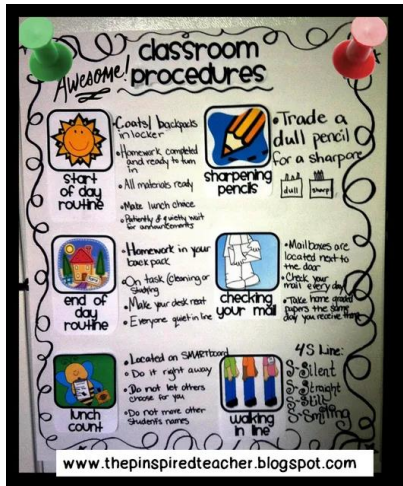 classroom
Awesome! procedures
start
of day
routine
• Coats/ backpacks
in locker
• Homework completed
and ready to turn
in
• All materials ready
• Make lunch choice
• Patiently & quietly wait
for announcements
sharpening
pencils
• Trade a
dull pencil
for a sharp one
dull
sharp
end of
day
routine
• Homework in your
back pack
• On task (cleaning or
studying)
• Make your desk neat
• Everyone quiet in line
checking
your mail
• Mailboxes are
located next to
the door
• Check your
mail every day!
• Take home graded
papers the same
day you receive them
lunch
count
• Located on SMARTboard
• Do it right away
• Do not let others
choose for you
• Do not move other
student's names
walking
in line
4S Line:
S-Silent
S-Straight
S-Still
S-Smiling
www.thepinspiredteacher.blogspot.com